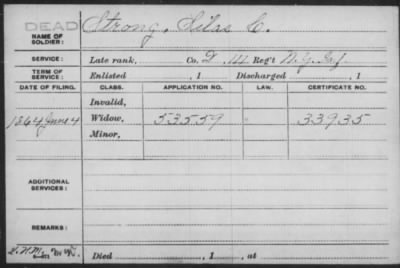 DEAD
NAME OF SOLDIER: Strong, Silas C.
SERVICE: Late rank, Co. D, 14 Reg't N.Y. Inf.
TERM OF SERVICE: Enlisted , 1 Discharged , 1
DATE OF FILING. CLASS. APPLICATION NO. LAW. CERTIFICATE NO.
Invalid,
1864 June 4 Widow, 53559 33935
Minor,
ADDITIONAL SERVICES:
REMARKS:
Died , 1 , at